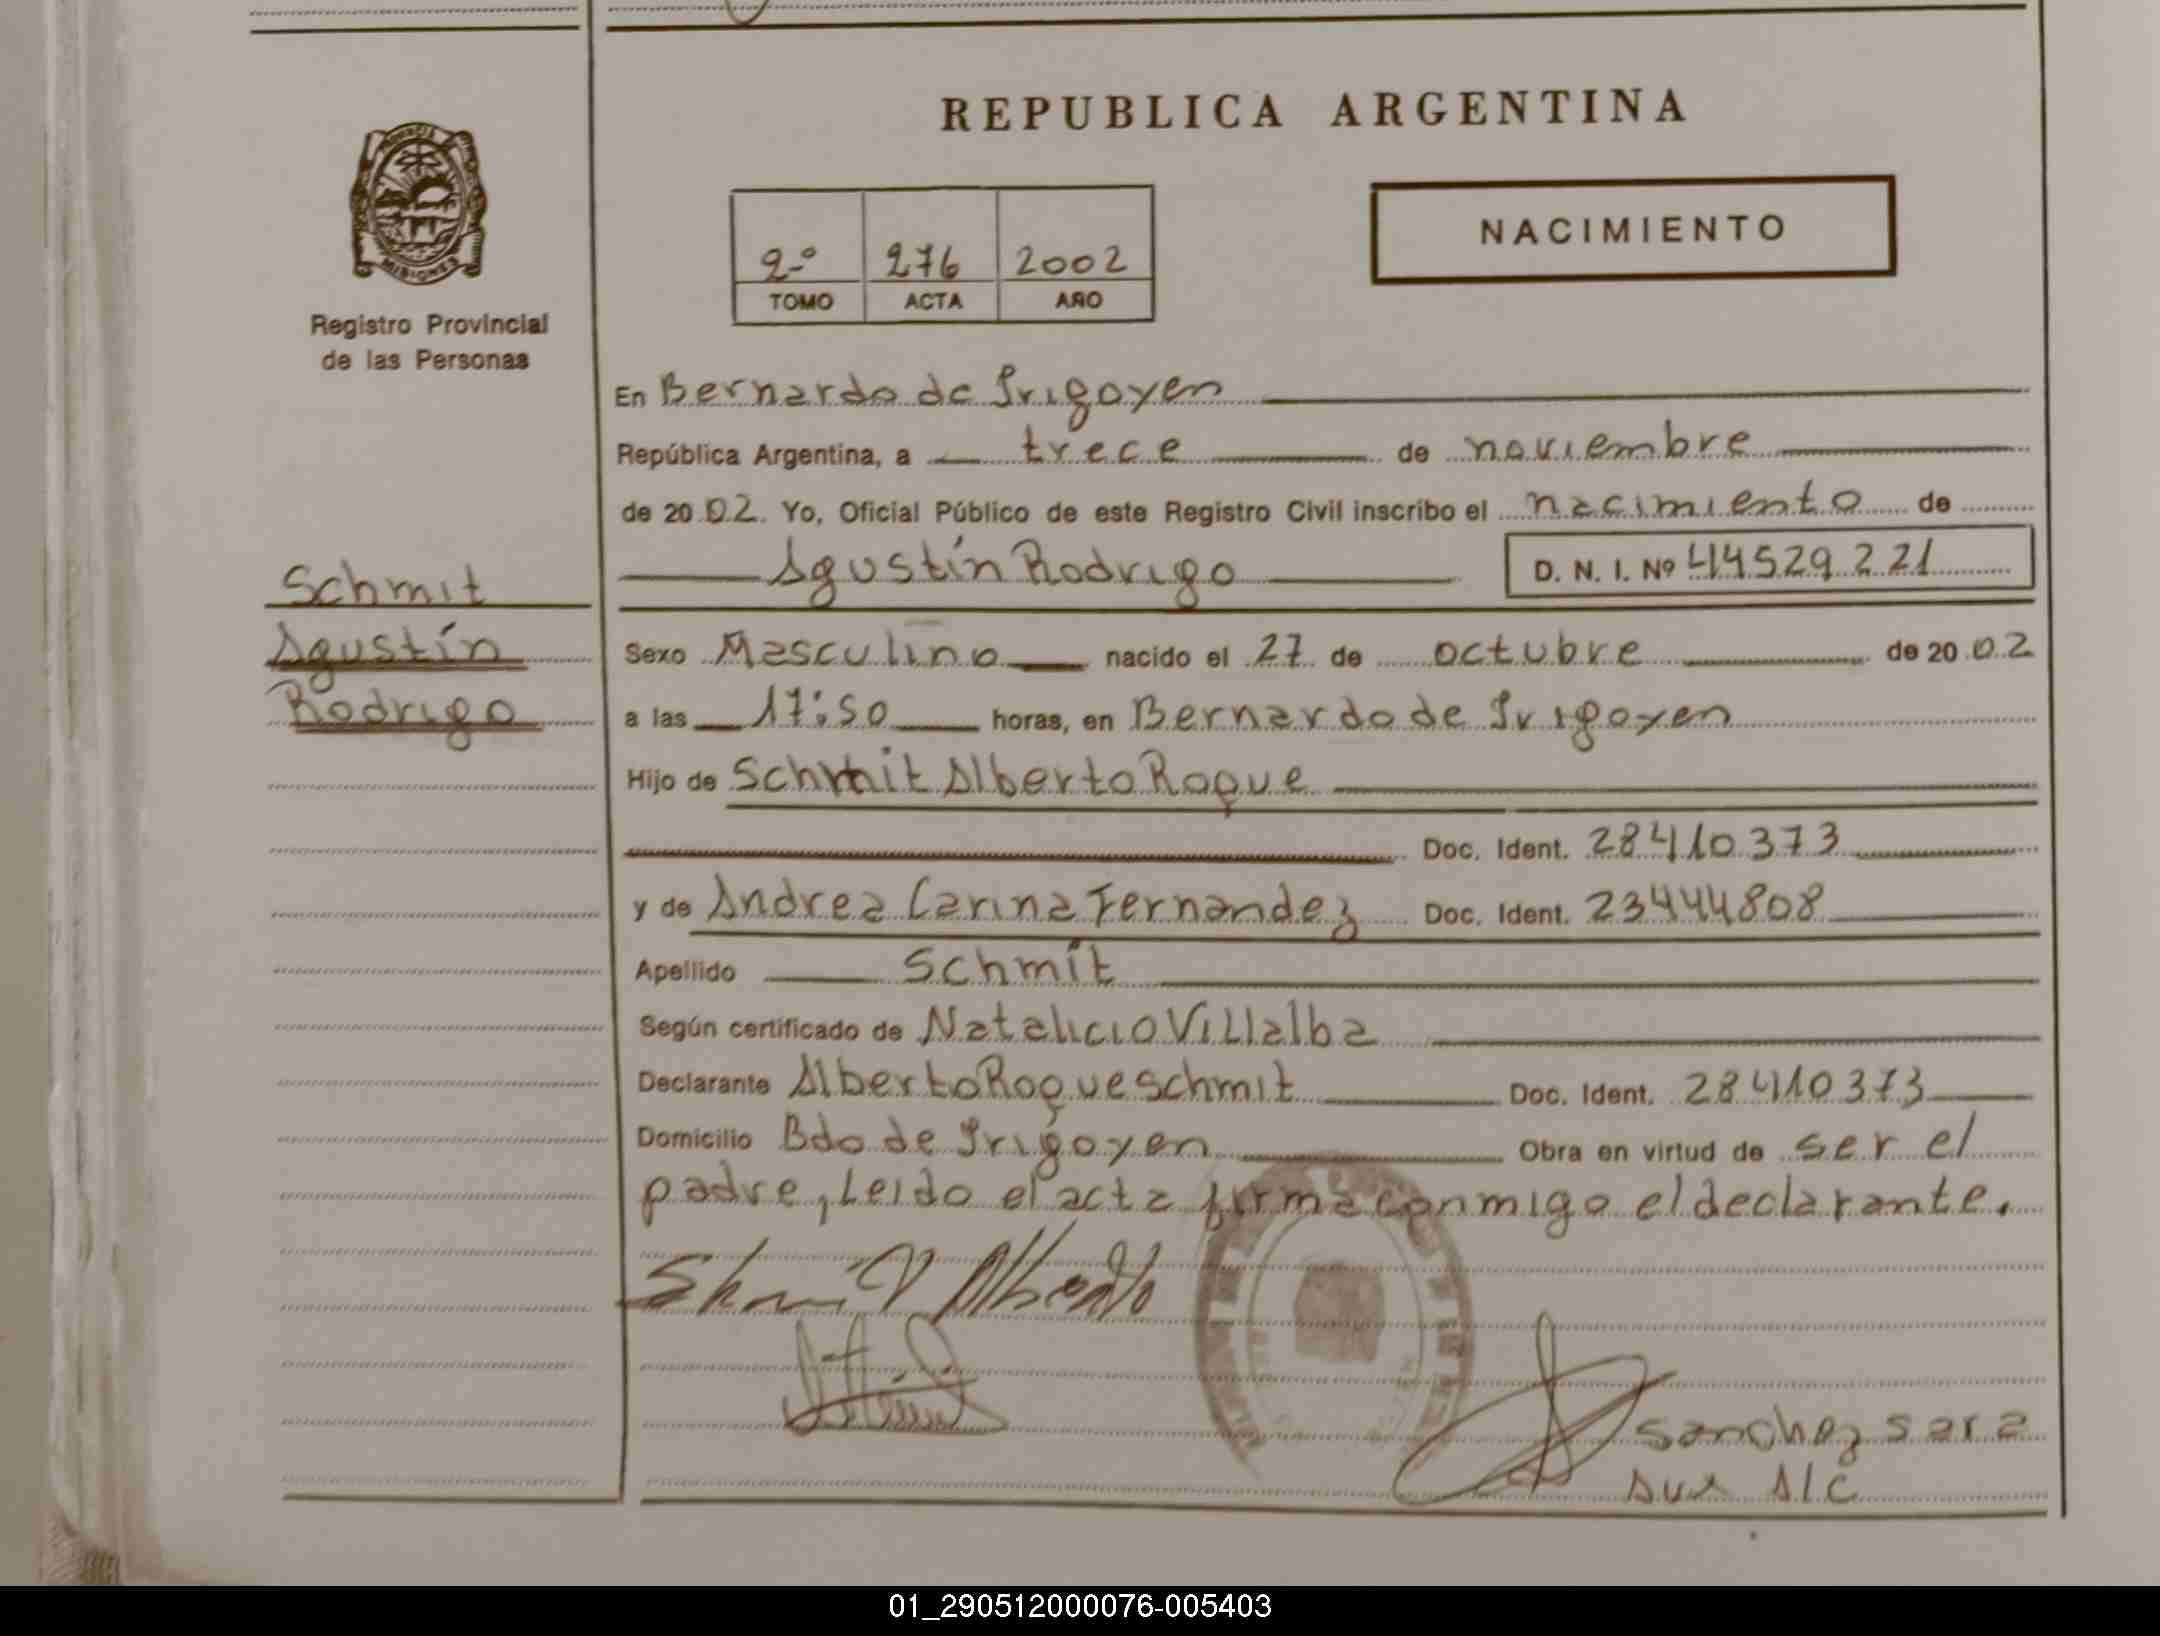 REPUBLICA ARGENTINA
MISIONES
Registro Provincial
de las Personas
2º 276 2002
TOMO ACTA AÑO
NACIMIENTO
En Bernardo de Irigoyen
República Argentina, a trece de noviembre
de 2002. Yo, Oficial Público de este Registro Civil inscribo el nacimiento de
Agustín Rodrigo D. N. I. Nº 44529221
Schmit
Agustín
Rodrigo
Sexo Masculino nacido el 27 de octubre de 2002
a las 17:50 horas, en Bernardo de Irigoyen
Hijo de Schmit Alberto Roque
Doc. Ident. 28410373
y de Andrea Carina Fernandez Doc. Ident. 23444808
Apellido Schmit
Según certificado de Natalicio Villalba
Declarante Alberto Roque Schmit Doc. Ident. 28410373
Domicilio Bdo de Irigoyen Obra en virtud de ser el
padre, Leido el acta firma conmigo el declarante.
Shmit Alberto
Sanchez Sara
Aux A/C
01_290512000076-005403